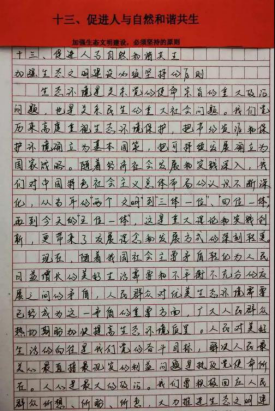 十三、促进人与自然和谐共生
加强生态文明建设，必须坚持的原则
十三、促进人与自然和谐共生
加强生态文明建设必须坚持的原则
生态环境是关系党的使命宗旨的重大政治
问题，也是关系民生的重大社会问题。我们党
历来高度重视生态环境保护，把节约资源和保
护环境确立为基本国策，把可持续发展确立为
国家战略。随着经济社会发展和实践深入，我
们对中国特色社会主义总体布局的认识不断深
化，从当年的“两个文明”到“三位一体”、“四位一体”，
再到今天的“五位一体”，这是重大理论和实践创
新，更带来了发展理念和发展方式的深刻转变
现在，随着我国社会主要矛盾转化为人民
日益增长的美好生活需要和不平衡不充分的发
展之间的矛盾，人民群众对优美生态环境需要
已经成为这一矛盾的重要方面，广大人民群众
热切期盼加快提高生态环境质量。人民对美好
生活的向往是我们党的奋斗目标，解决人民最
关心最直接最现实的利益问题是执政党使命所
在。人心是最大的政治。我们要积极回应人民
群众所想、所盼、所急，大力推进生态文明建